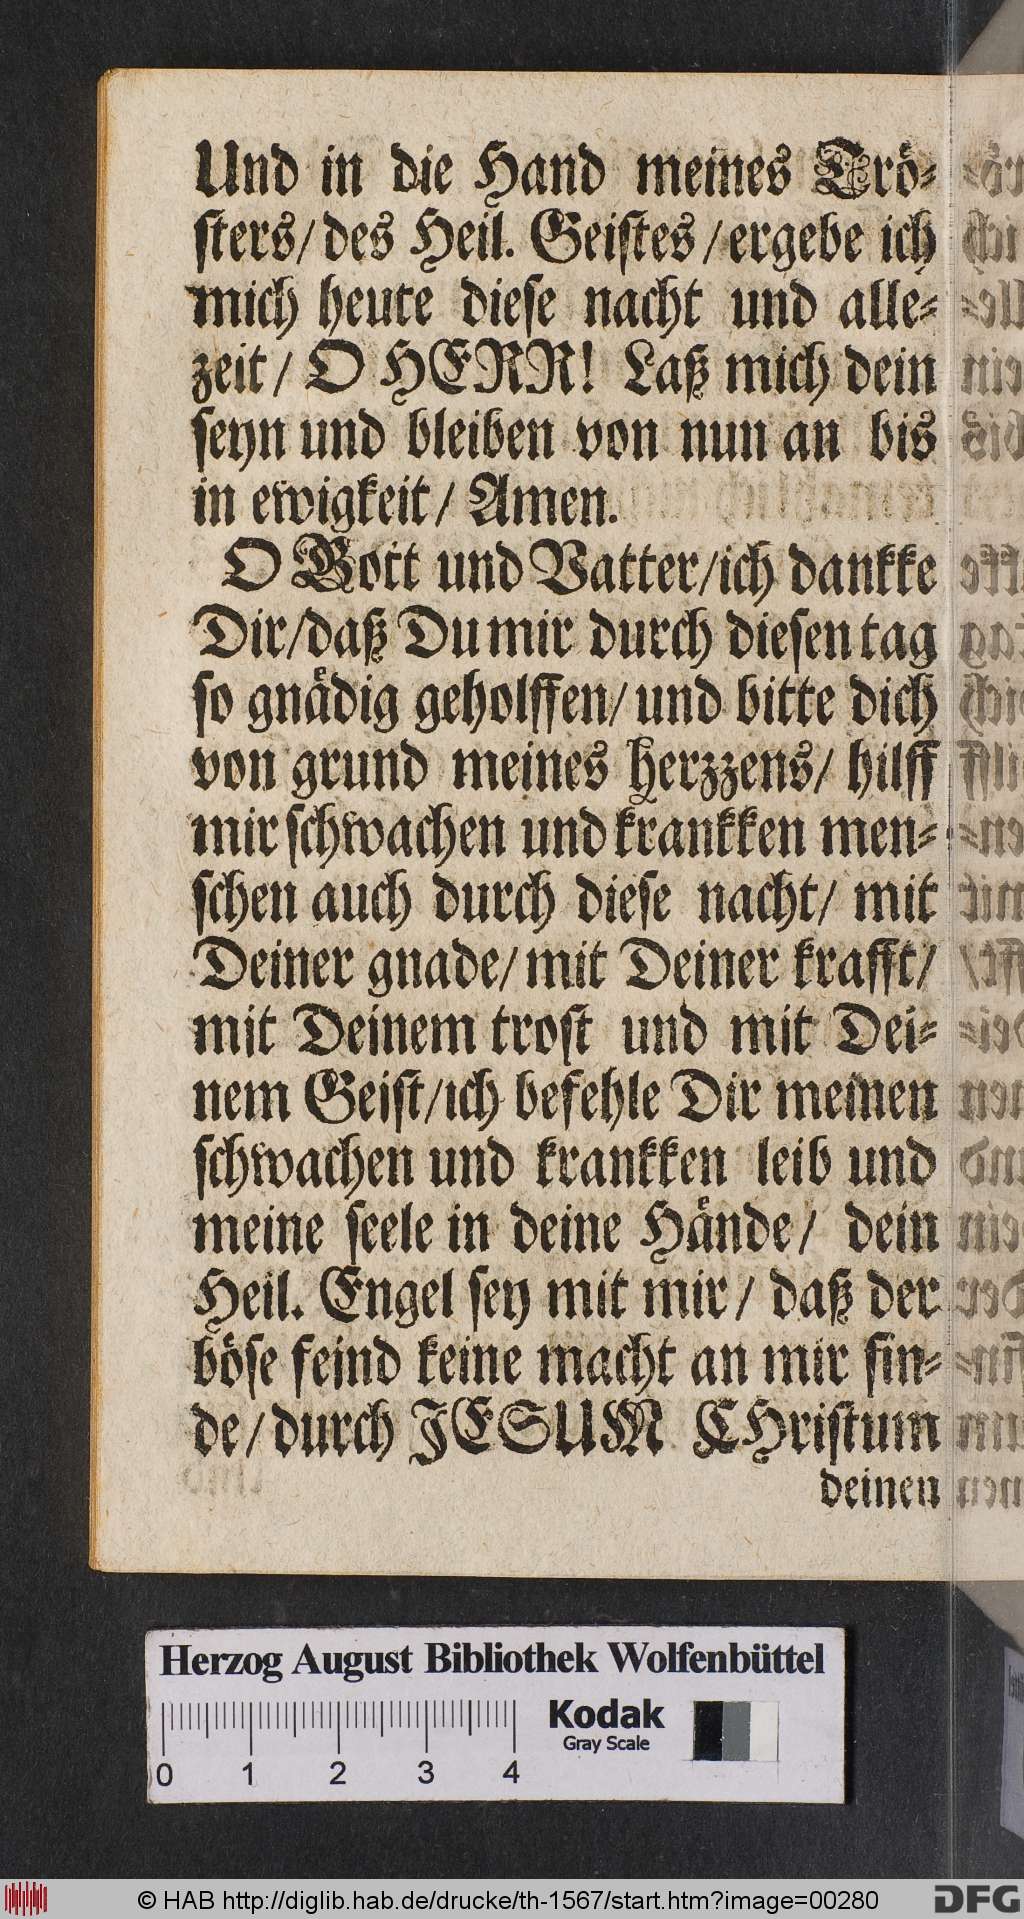 Und in die Hand meines Trö-
sters/ des Heil. Geistes / ergebe ich
mich heute diese nacht und alle-
zeit / O HERR! Laß mich dein
seyn und bleiben von nun an bis
in ewigkeit / Amen.
O Gott und Vatter/ich dankke
Dir/daß Du mir durch diesen tag
so gnädig geholffen/ und bitte dich
von grund meines herzzens/ hilff
mir schwachen und krankken men-
schen auch durch diese nacht/ mit
Deiner gnade/ mit Deiner krafft/
mit Deinem trost und mit Dei-
nem Geist/ich befehle Dir meinen
schwachen und krankken leib und
meine seele in deine Hände/ dein
Heil. Engel sey mit mir / daß der
böse feind keine macht an mir fin-
de/ durch JESUM CHristum
deinen
Herzog August Bibliothek Wolfenbüttel
Kodak
Gray Scale
0 1 2 3 4
© HAB http://diglib.hab.de/drucke/th-1567/start.htm?image=00280
DFG